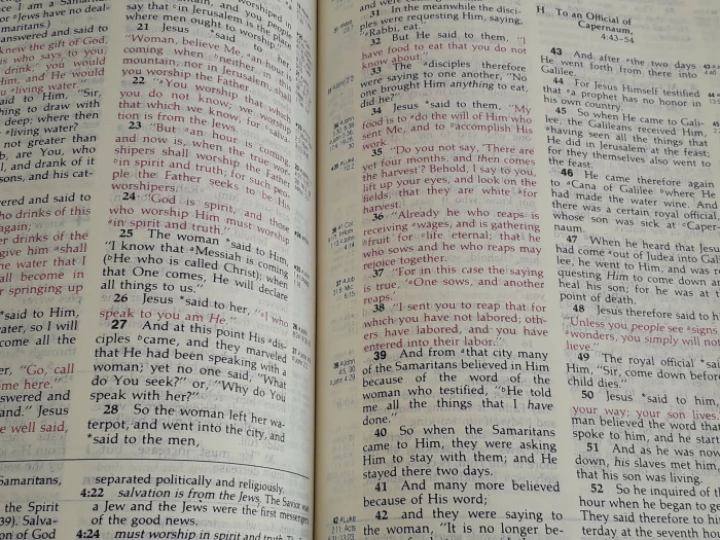 ce I am a Samaritan
Jews have no deal-
maritans.)
answered and said to
knew the gift of God,
who it is who says to you
drink,' you would
Him, and He would
living water."
said to Him, "Sir,
thing to draw with
deep; where then
living water?
not greater than
b, are You, who
l, and drank of it
sons, and his cat-
wered and said to
who drinks of this
again;
er drinks of the
give him shall
the water that I
all become in
r springing up
said to Him,
water, so I will
come all the
er, "Go, call
me here."
nswered and
and." Jesus
e well said,
say that in Jerusalem is the place
where men ought to worship."
21 Jesus *said to her,
"Woman, believe Me, an hour is
coming when neither in this
mountain, nor in Jerusalem, shall
you worship the Father.
22 "You worship that which
you do not know; we worship
that which we know, for salva-
tion is from the Jews.
23 "But an hour is coming,
and now is, when the true wor-
shipers shall worship the Father
in spirit and truth; for such peo-
ple the Father seeks to be His
worshipers.
24 "God is spirit, and those
who worship Him must worship
in spirit and truth."
25 The woman *said to Him,
"I know that Messiah is coming
(He who is called Christ); when
that One comes, He will declare
all things to us."
26 Jesus *said to her, "I who
speak to you am He."
27 And at this point His dis-
ciples came, and they marveled
that He had been speaking with a
woman; yet no one said, "What
do You seek?" or, "Why do You
speak with her?"
28 So the woman left her wa-
terpot, and went into the city, and
*said to the men,
Samaritans,
the Spirit
39). Salva-
on of God
separated politically and religiously.
4:22 salvation is from the Jews. The Savior was
a Jew and the Jews were the first messengers
of the good news.
4:24 must worship in spirit and truth.
31 In the meanwhile the disci-
ples were requesting Him, saying,
"Rabbi, eat."
32 But He said to them, "I
have food to eat that you do not
know about."
33 The disciples therefore
were saying to one another, "No
one brought Him anything to eat,
did he?"
34 Jesus *said to them, "My
food is to do the will of Him who
sent Me, and to accomplish His
work.
35 "Do you not say, 'There are
yet four months, and then comes
the harvest'? Behold, I say to you,
lift up your eyes, and look on the
fields, that they are white for
harvest.
36 "Already he who reaps is
receiving wages, and is gathering
fruit for life eternal; that he
who sows and he who reaps may
rejoice together.
37 "For in this case the saying
is true, 'One sows, and another
reaps.'
38 "I sent you to reap that for
which you have not labored; oth-
ers have labored, and you have
entered into their labor."
39 And from that city many
of the Samaritans believed in Him
because of the word of the
woman who testified, "He told
me all the things that I have
done."
40 So when the Samaritans
came to Him, they were asking
Him to stay with them; and He
stayed there two days.
41 And many more believed
because of His word;
42 and they were saying to
the woman, "It is no longer be-
H. To an Official of
Capernaum,
4:43-54
43 And after the two days
He went forth from there into
Galilee.
44 For Jesus Himself testified
that a prophet has no honor in
his own country.
45 So when He came to Gali-
lee, the Galileans received Him,
having seen all the things that
He did in Jerusalem at the feast;
for they themselves also went to
the feast.
46 He came therefore again
to Cana of Galilee where He
had made the water wine. And
there was a certain royal official,
whose son was sick at Caper-
naum.
47 When he heard that Jesus
had come out of Judea into Gal
lee, he went to Him, and was r
questing Him to come down an
heal his son; for he was at t
point of death.
48 Jesus therefore said to h
"Unless you people see signs
wonders, you simply will not
lieve."
49 The royal official *sai
Him, "Sir, come down before
child dies."
50 Jesus *said to him,
your way; your son lives.
man believed the word that
spoke to him, and he start
51 And as he was now
down, his slaves met him,
that his son was living.
52 So he inquired of th
hour when he began to ge
They said therefore to hi
terday at the seventh hou